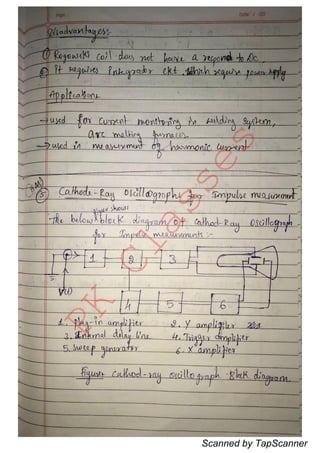 Disadvantages:
① Rogowski coil does not have a respond to Dc.
② It requires integrator ckt. which require power supply
Applications
→ used for current monitoring in welding system,
arc melting furnaces.
→ used in measurement of harmonic current
⑤ Cathode-Ray Oscillographs for Impulse measurement
The below figure shows block diagram of Cathod-Ray Oscillograph
for Impulse measurements :-
1 2 3
V(t)
4 5 6
1. Plug-in amplifier 2. Y amplifier
3. Internal delay line 4. Trigger amplifier
5. Sweep generator 6. X amplifier
Figure: cathod-ray oscillograph Block diagram.
PK Classes
Scanned by TapScanner